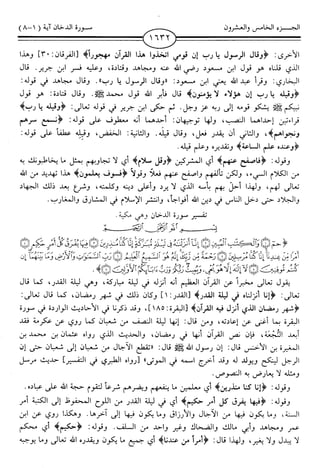 الجـــزء الخامس والعشرون
١٦٣٢
سورة الدخان آية (١-٨)
الأخرى: ﴿وقال الرسول يا رب إن قومي اتخذوا هذا القرآن مهجوراً﴾ [الفرقان: ٣٠] وهذا
الذي قلناه هو قول ابن مسعود رضي الله عنه ومجاهد وقتادة، وعليه فسر ابن جرير. قال
البخاري: وقرأ عبد الله يعني ابن مسعود: «وقال الرسول يا رب». وقال مجاهد في قوله:
﴿وقيله يا رب إن هؤلاء لا يؤمنون﴾ قال فأبر الله قول محمد ﷺ. وقال قتادة: هو قول
نبيكم ﷺ يشكو قومه إلى ربه عز وجل. ثم حكى ابن جرير في قوله تعالى: ﴿وقيله يا رب﴾
قراءتين إحداهما النصب، ولها توجيهان: أحدهما أنه معطوف على قوله: ﴿نسمع سرهم
ونجواهم﴾، والثاني أن يقدر فعل، وقال قيله. والثانية: الخفض، وقيله عطفاً على قوله:
﴿وعنده علم الساعة﴾ وتقديره وعلم قيله.
وقوله: ﴿فاصفح عنهم﴾ أي المشركين ﴿وقل سلام﴾ أي لا تجاوبهم بمثل ما يخاطبونك به
من الكلام السيء، ولكن تألفهم واصفح عنهم فعلاً وقولاً ﴿فسوف يعلمون﴾ هذا تهديد من الله
تعالى لهم، ولهذا أحل بهم بأسه الذي لا يرد وأعلى دينه وكلمته، وشرع بعد ذلك الجهاد
والجلاد حتى دخل الناس في دين الله أفواجاً، وانتشر الإسلام في المشارق والمغارب.
تفسير سورة الدخان وهي مكية.
بسم الله الرحمن الرحيم
﴿حم ۝ والكتاب المبين ۝ إنا أنزلناه في ليلة مباركة إنا كنا منذرين ۝ فيها يفرق كل أمر حكيم ۝
أمرا من عندنا إنا كنا مرسلين ۝ رحمة من ربك إنه هو السميع العليم ۝ رب السماوات والأرض وما بينهما إن
كنتم موقنين ۝ لا إله إلا هو يحيي ويميت ربكم ورب آبائكم الأولين ۝﴾.
يقول تعالى مخبراً عن القرآن العظيم أنه أنزله في ليلة مباركة، وهي ليلة القدر، كما قال
تعالى: ﴿إنا أنزلناه في ليلة القدر﴾ [القدر: ١] وكان ذلك في شهر رمضان، كما قال تعالى:
﴿شهر رمضان الذي أنزل فيه القرآن﴾ [البقرة: ١٨٥]، وقد ذكرنا في الأحاديث الواردة في سورة
البقرة بما أغنى عن إعادته، ومن قال: إنها ليلة النصف من شعبان كما روي عن عكرمة فقد
أبعد النُّجْعَة، فإن نص القرآن أنها في رمضان، والحديث الذي رواه عثمان بن محمد بن
المغيرة بن الأخنس قال: إن رسول الله ﷺ قال: «تقطع الآجال من شعبان إلى شعبان حتى إن
الرجل لينكح ويولد له وقد أخرج اسمه في الموتى» [رواه الطبري في التفسير] حديث مرسل
ومثله لا يعارض به النصوص.
وقوله: ﴿إنا كنا منذرين﴾ أي معلمين ما ينفعهم ويضرهم شرعاً لتقوم حجة الله على عباده.
وقوله: ﴿فيها يفرق كل أمر حكيم﴾ أي في ليلة القدر من اللوح المحفوظ إلى الكتبة أمر
السنة، وما يكون فيها من الآجال والأرزاق وما يكون فيها إلى آخرها. وهكذا روي عن ابن
عمر ومجاهد وأبي مالك والضحاك وغير واحد من السلف. وقوله: ﴿حكيم﴾ أي محكم
لا يبدل ولا يغير، ولهذا قال: ﴿أمراً من عندنا﴾ أي جميع ما يكون ويقدره الله تعالى وما يوحيه